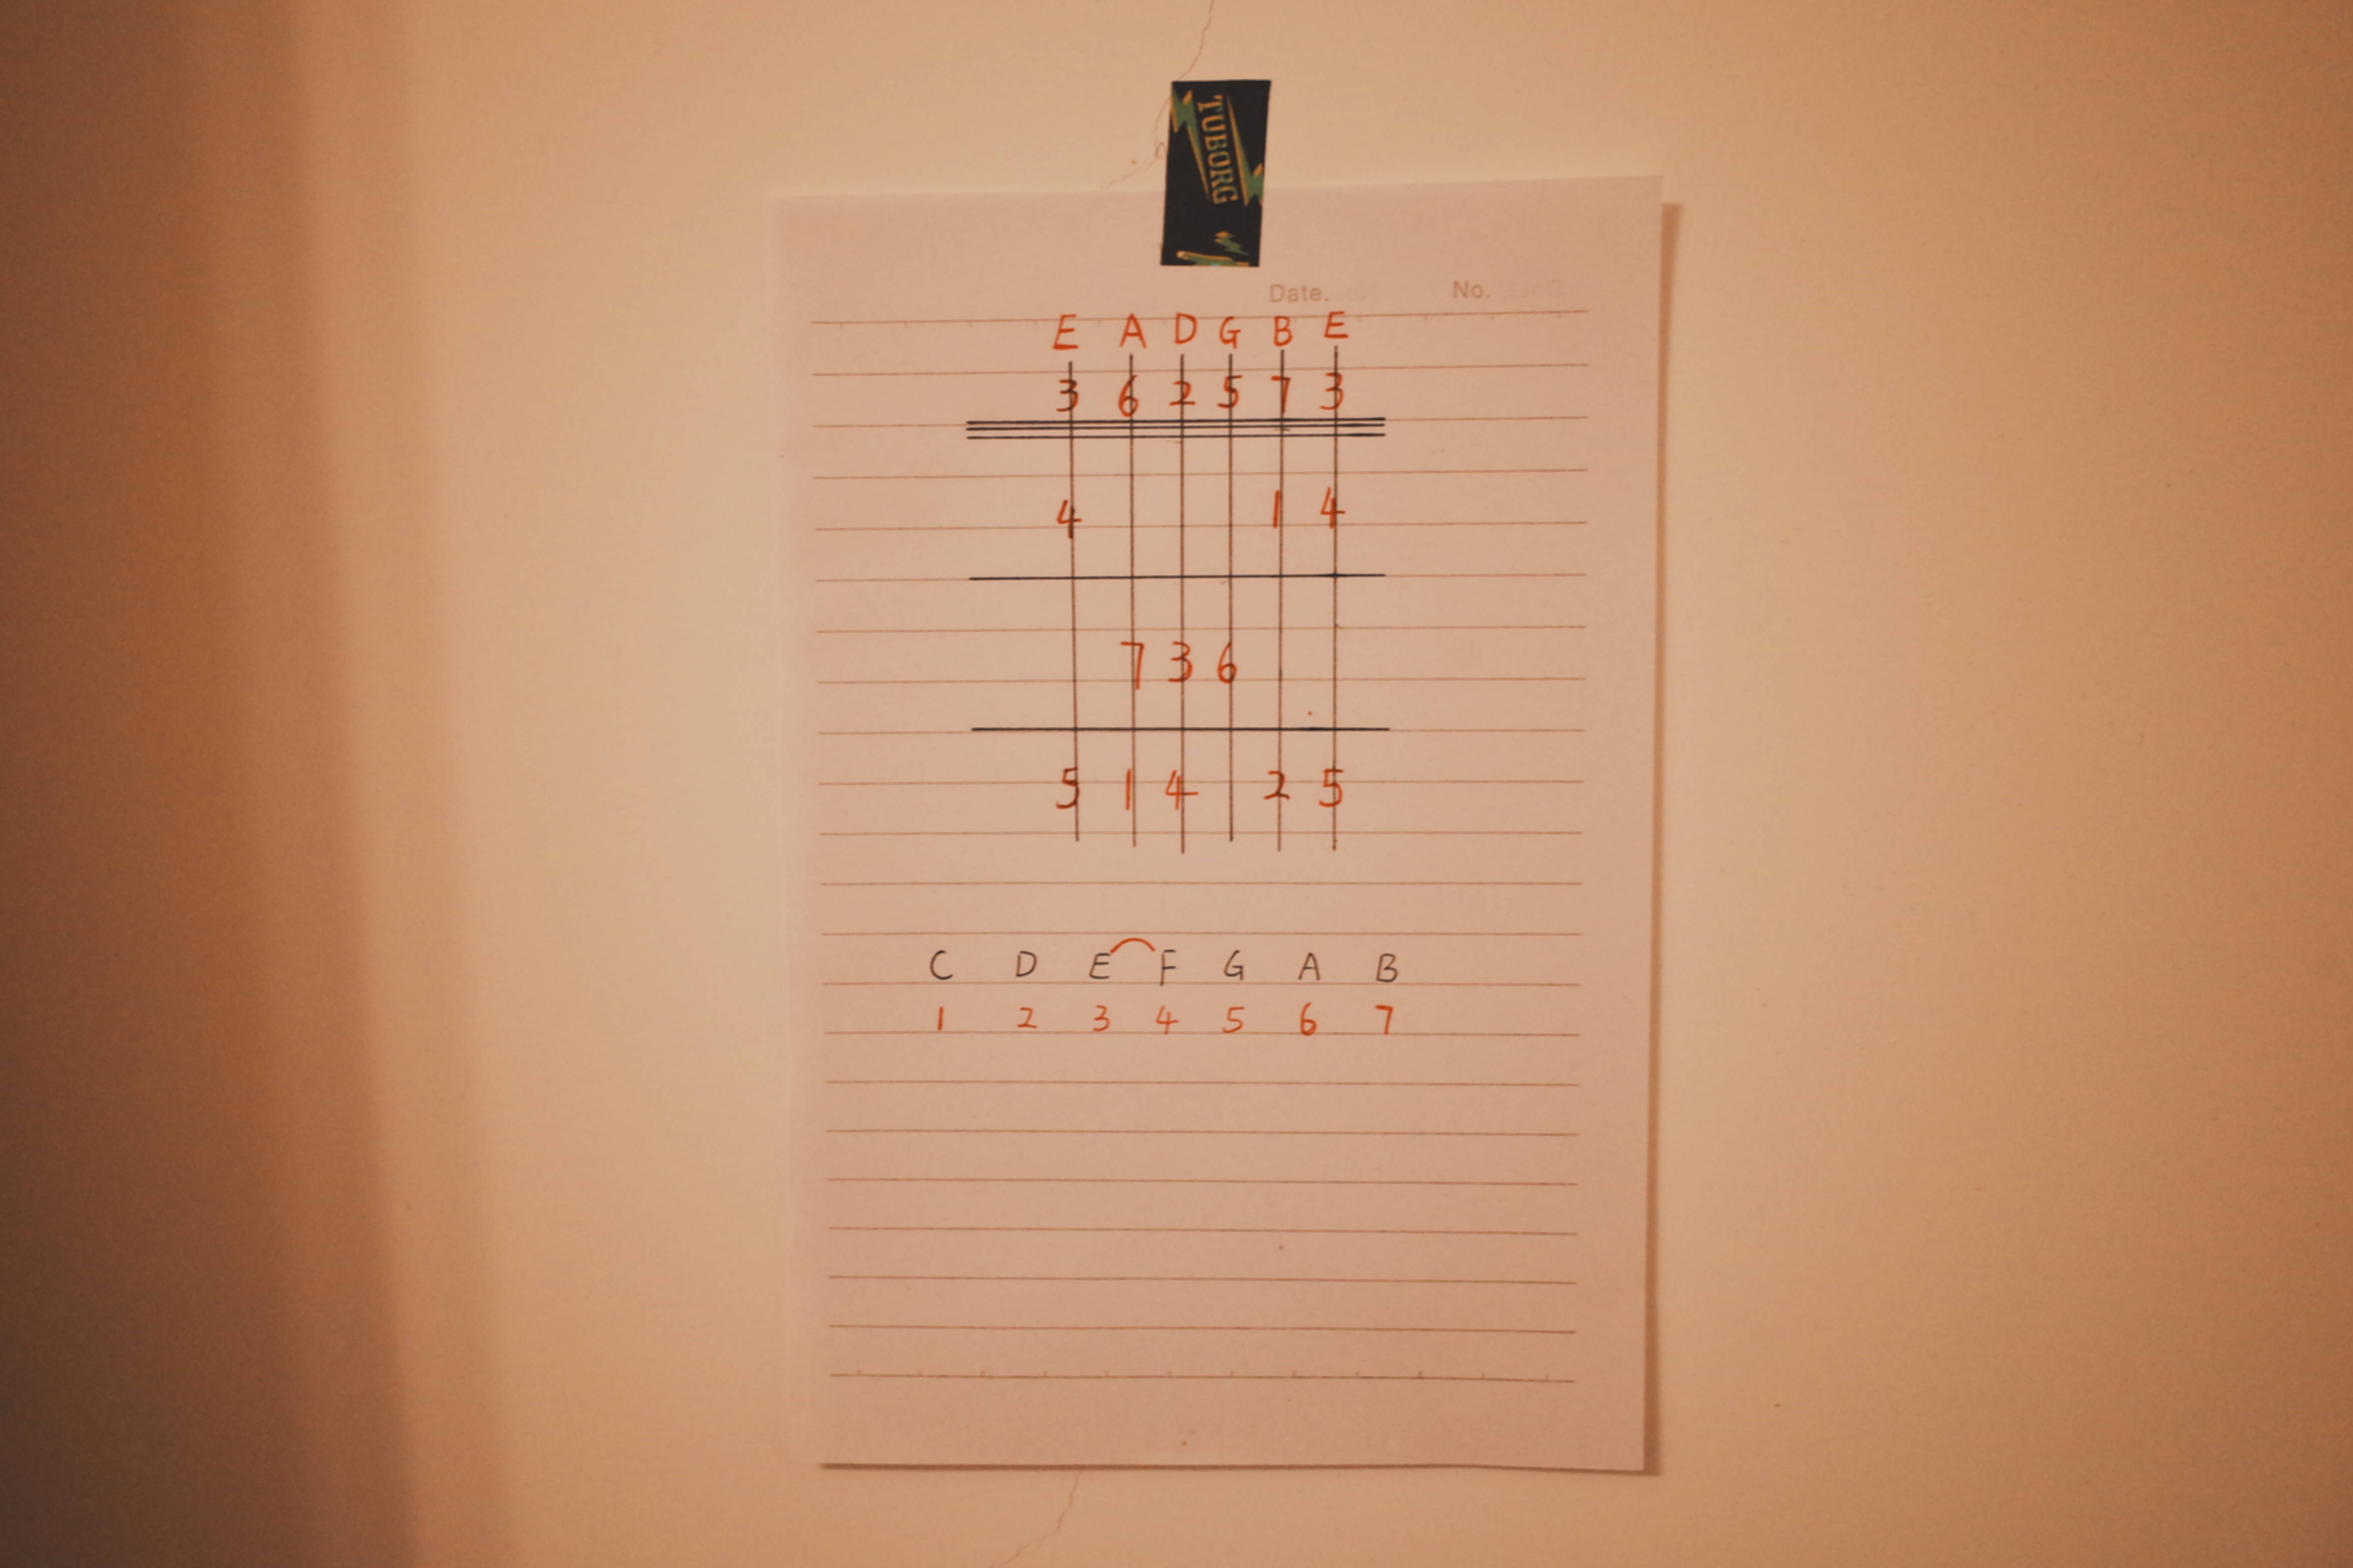 TUBORG
Date. No.
E A D G B E
3 6 2 5 7 3
4 1 4
7 3 6
5 1 4 2 5
C D E F G A B
1 2 3 4 5 6 7